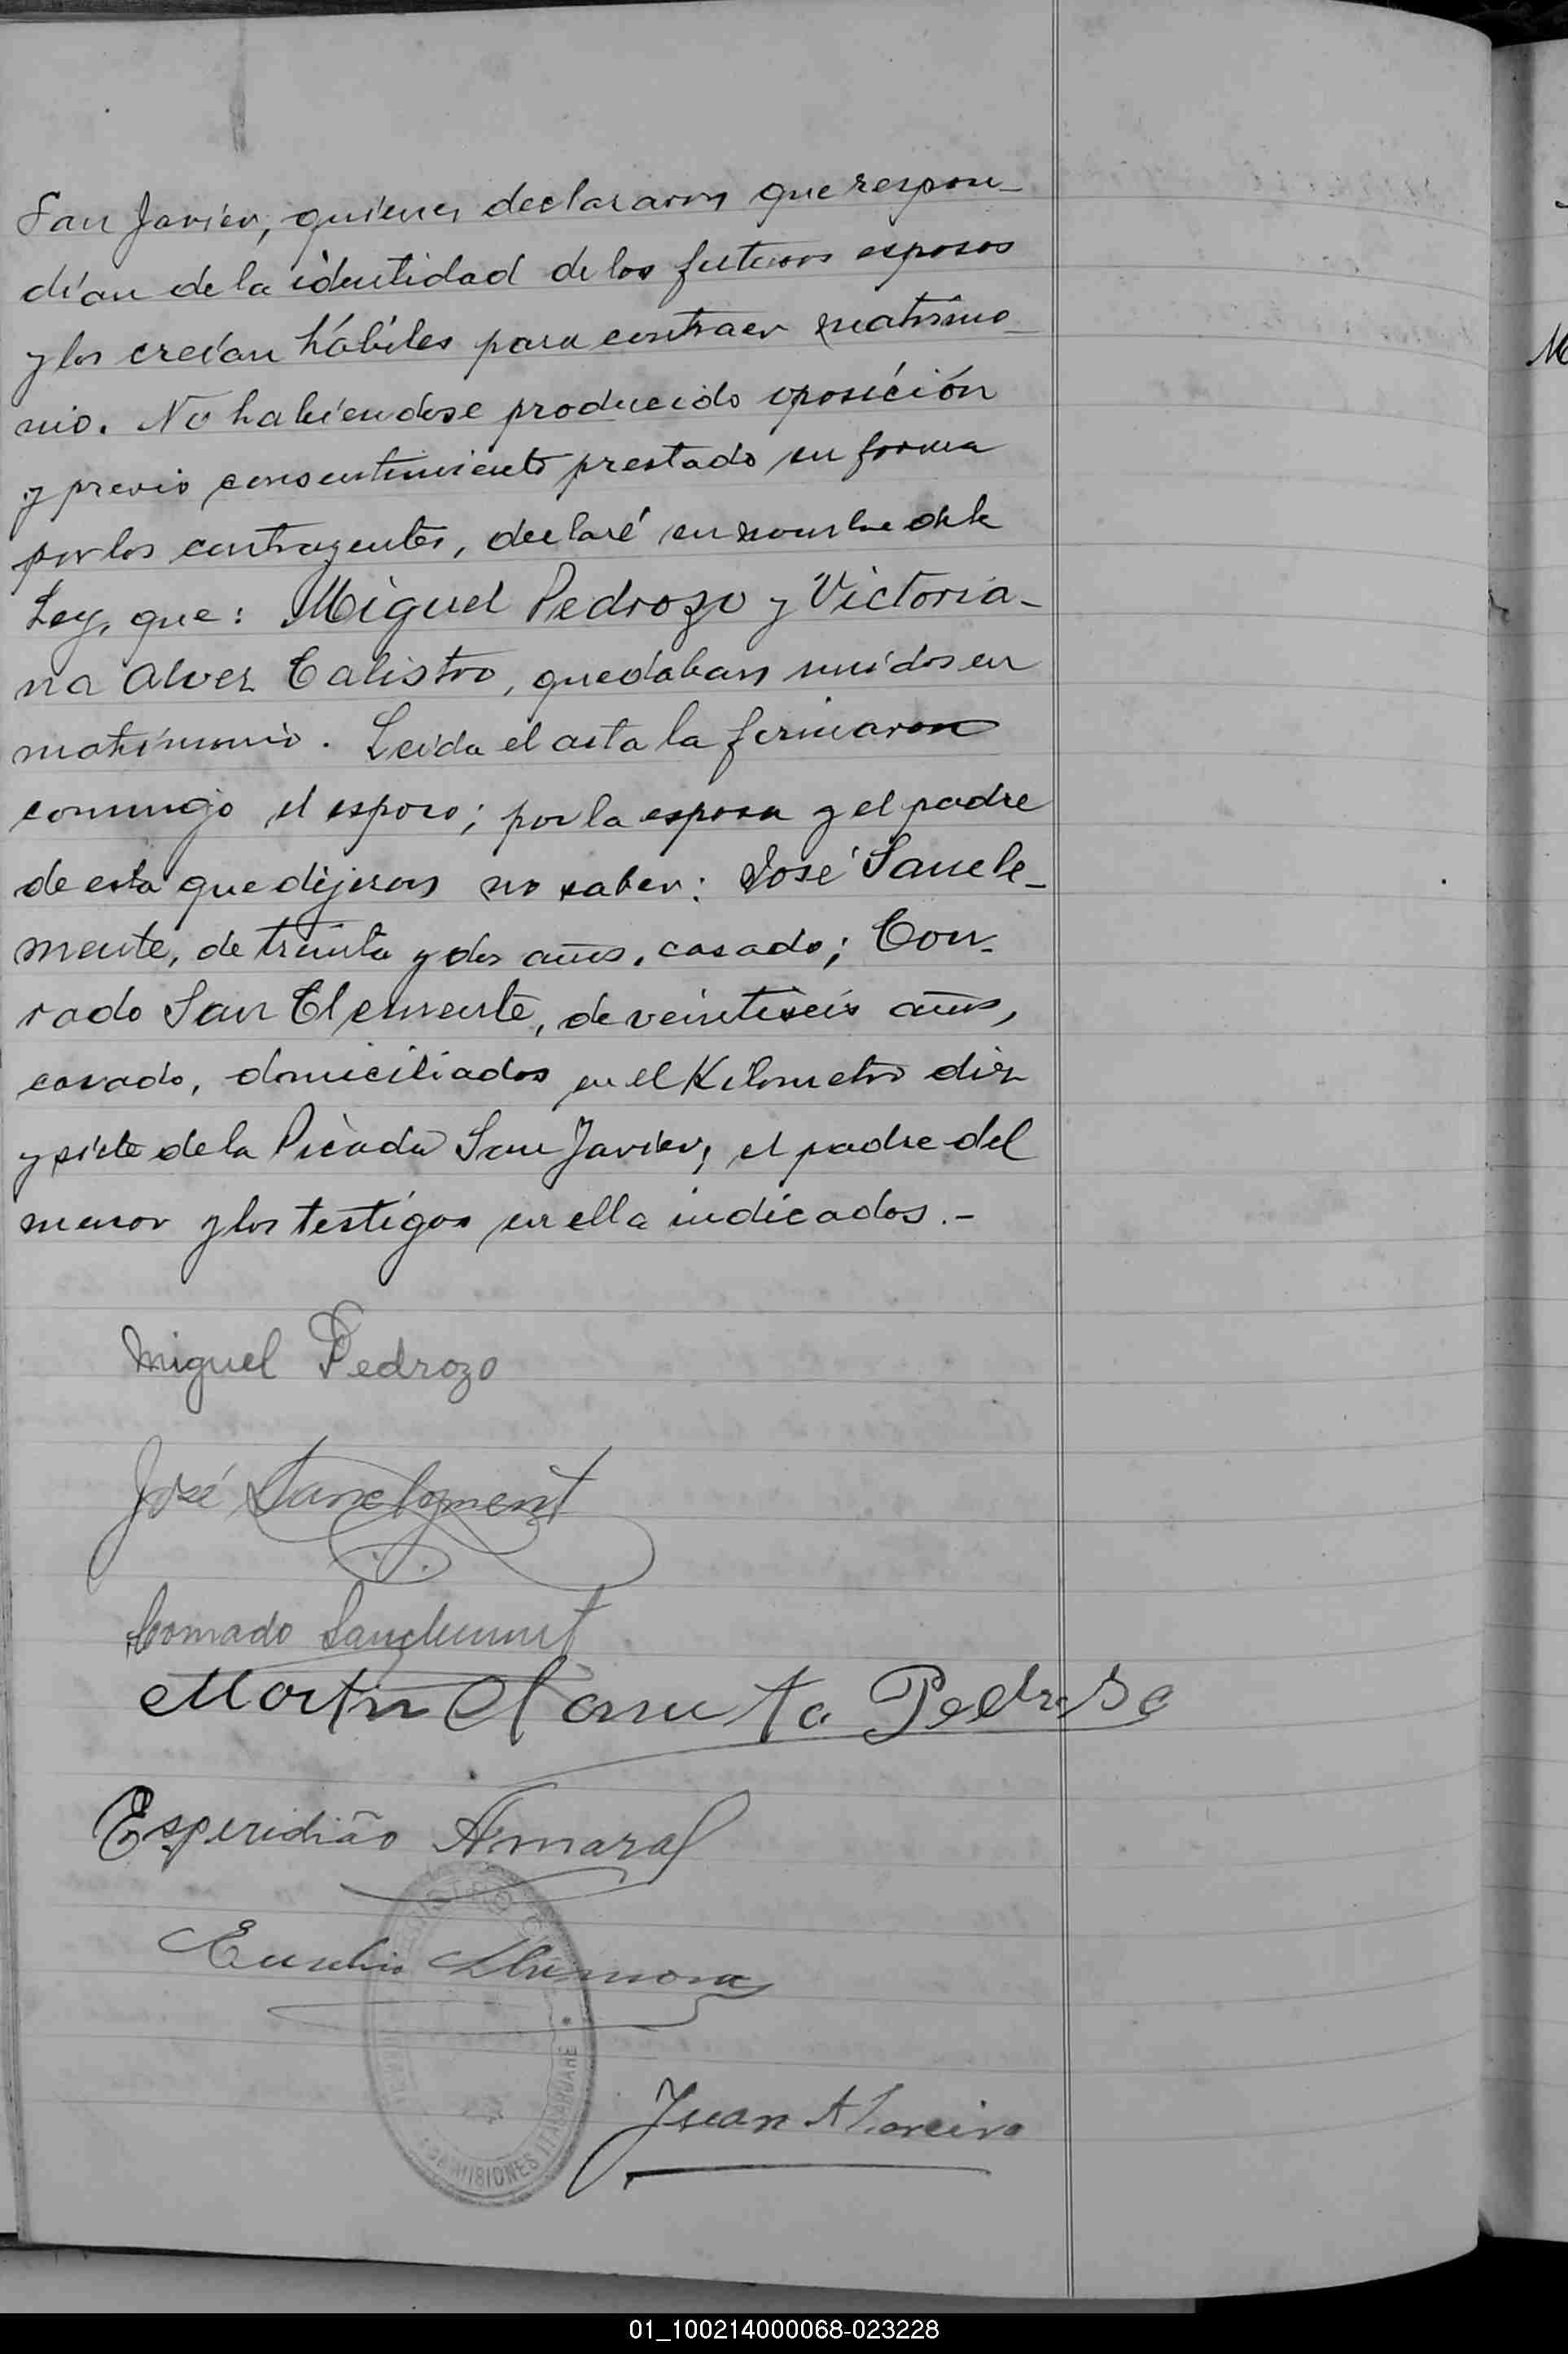 San Javier, quienes declararon que respon-
dían de la identidad de los futuros esposos
y los creían hábiles para contraer matrimo-
nio. No habiendose producido oposición
y previo consentimiento prestado en forma
por los contrayentes, declaré en nombre de la
Ley, que: Miguel Pedrozo y Victoria-
na Alvez Calistro, quedaban unidos en
matrimonio. Leida el acta la firmaron
conmigo el esposo; por la esposa y el padre
de esta que dijeron no saber: José Sancle-
mente, de treinta y dos años, casado; Con-
rado San Clemente, de veintiseis años,
casado, domiciliados en el Kilometro diez
y siete de la Picada San Javier; el padre del
menor y los testigos en ella indicados.-
Miguel Pedrozo
José
Conrado
Martin Pedroso
Esperidião Amaral
Eusebio
Juan
REGISTRO
MISIONES ITACARUARE
M
01_100214000068-023228